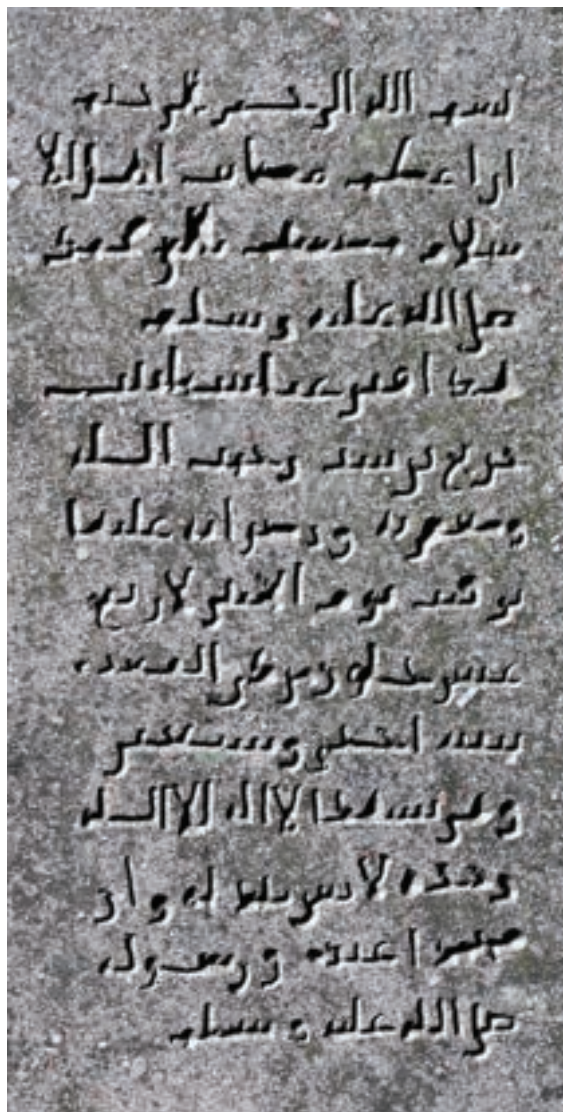 بسم الله الرحمن الرحيم
ان اعظم مصايب اهل الا
سلم مصيبتهم بالنبي محمد
صلى الله عليه وسلم
هذا قبر عباسة ابنت
جريج بن سند رحمت الله
ومغفرته ورضوانه عليها
توفيت يوم الاثنين لاربع
عشر خلون من ذي القعدة
سنة احدى وسبعين
وهي تشهد الا اله الا الله
وحده لا شريك له وان
محمدا عبده ورسوله
صلى الله عليه وسلم